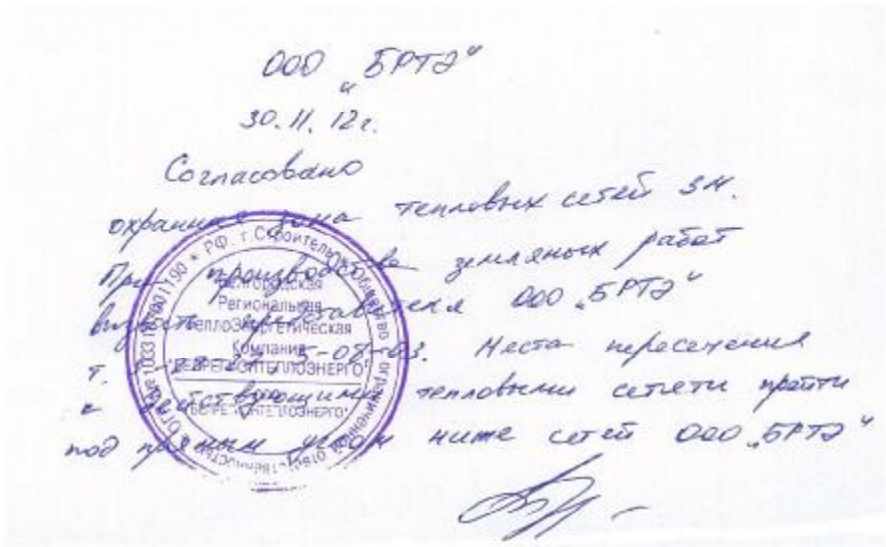 ООО „БРТЭ“
30.11.12г.
Согласовано
охранная зона тепловых сетей 3м.
При производстве земляных работ
вызвать представителя ООО „БРТЭ“
т. 5-08-03. Места пересечения
с действующими тепловыми сетями пройти
под прямым углом ниже сетей ООО „БРТЭ“
РФ. г.Строитель Общество с ограниченной ответственностью
Белгородская
Региональная
ТеплоЭнергетическая
Компания
"БЕЛРЕГИОНТЕПЛОЭНЕРГО"